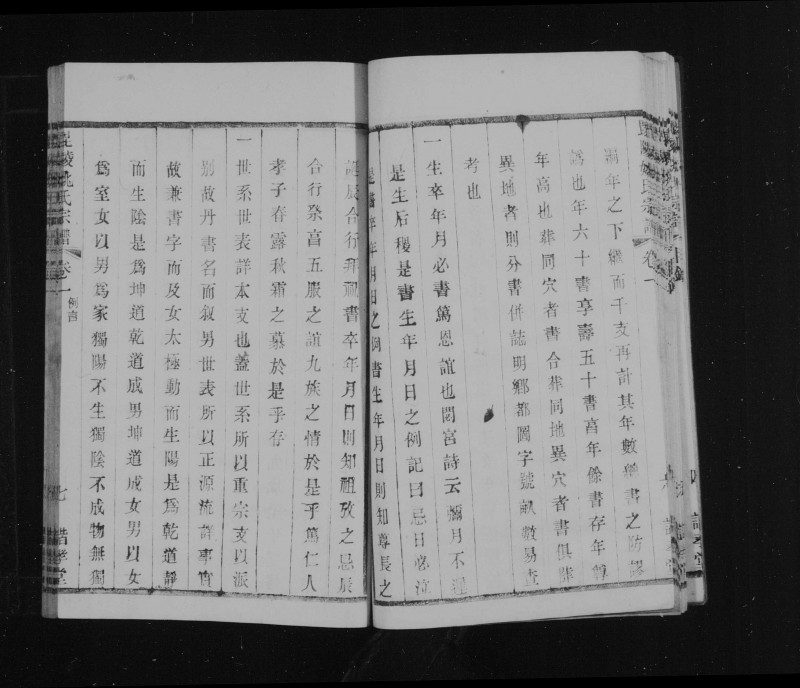 調年之下繼而干支再計其年數縱書之防謬
譌也年六十書享壽五十書享年餘書存年尊
年高也葬同穴者書合葬同地異穴者書俱葬
異地者則分書併誌明鄉都圖字號畝數易查
考也
一生卒年月必書篤恩誼也閟宮詩云彌月不遲
是生后稷是書生年月日之例記曰忌日必泣
是書卒年月日之例書生年月日則知尊長之
誕辰合行拜祝書卒年月日則知祖攷之忌辰
合行祭高五服之誼九族之情於是乎篤仁人
孝子春露秋霜之慕於是乎存
一世系世表詳本支也蓋世系所以重宗支以派
別故丹書名而叙男世表所以正源流詳事實
故兼書字而及女太極動而生陽是爲乾道靜
而生陰是爲坤道乾道成男坤道成女男以女
爲室女以男爲家獨陽不生獨陰不成物無獨
毘陵姚氏宗譜
卷一
例言
七
惜孝堂